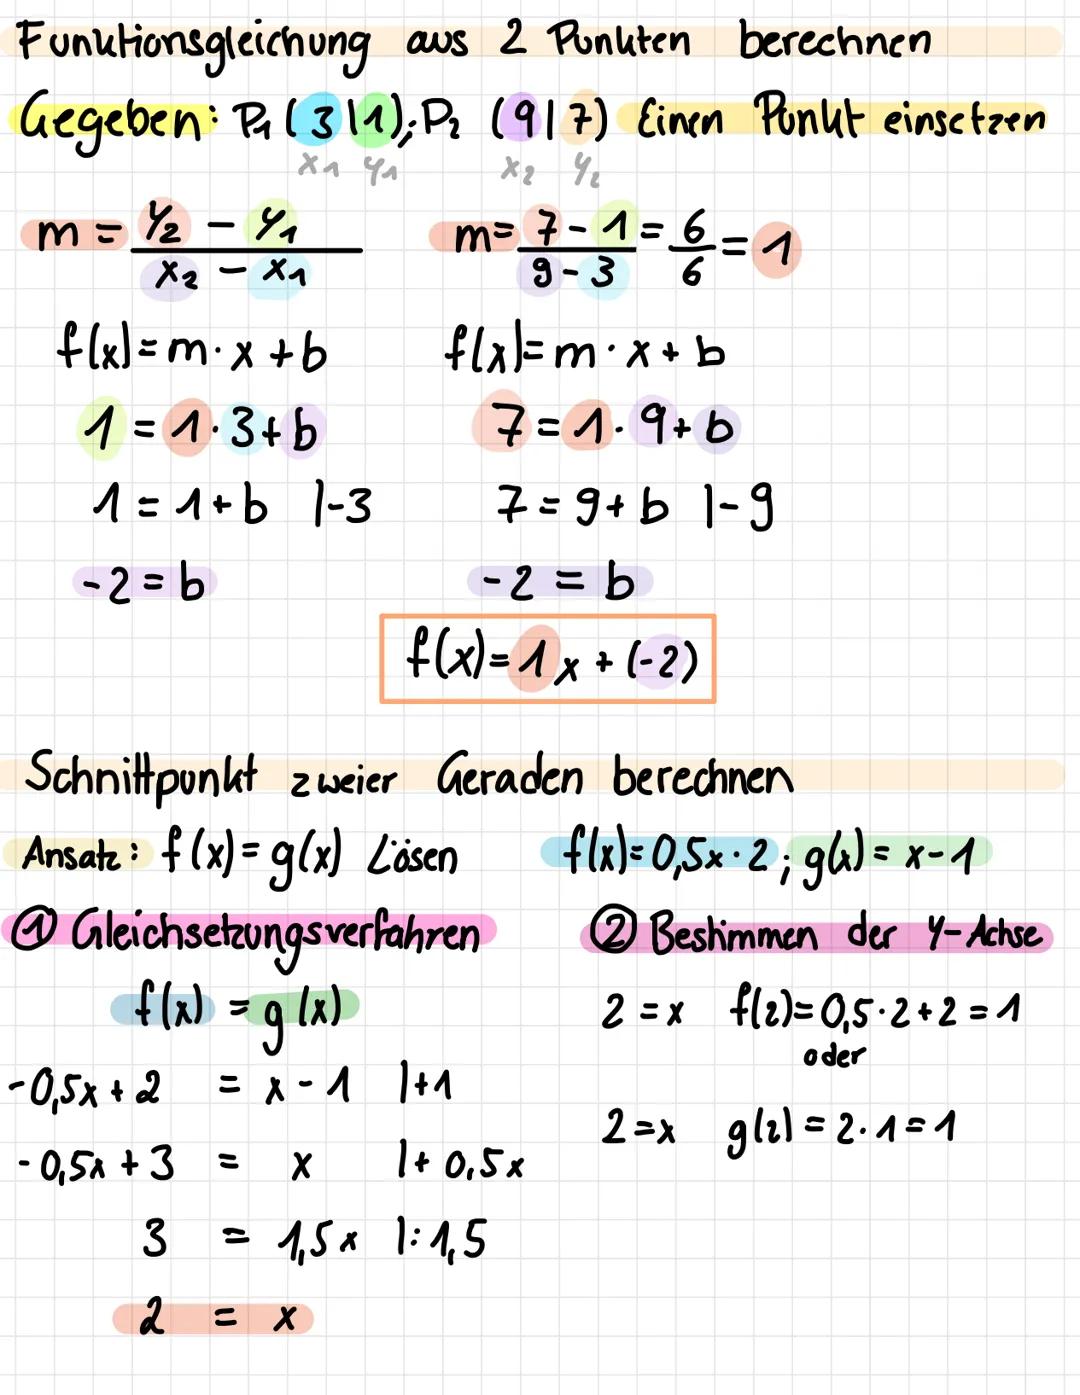 Funktionsgleichung aus 2 Punkten berechnen
Gegeben: P₁ (3|1); P₂ (9|7) Einen Punkt einsetzen
x₁ y₁ x₂ y₂
m = y₂ - y₁ / x₂ - x₁ m = 7-1 / 9-3 = 6/6 = 1
f(x) = m · x + b f(x) = m · x + b
1 = 1 · 3 + b 7 = 1 · 9 + b
1 = 1 + b |-3 7 = 9 + b |-9
-2 = b -2 = b
f(x) = 1x + (-2)
Schnittpunkt zweier Geraden berechnen
Ansatz: f(x) = g(x) Lösen f(x) = 0,5x · 2; g(x) = x-1
① Gleichsetzungsverfahren ② Bestimmen der y-Achse
f(x) = g(x) 2 = x f(2) = 0,5 · 2 + 2 = 1
oder
-0,5x + 2 = x - 1 |+1
2 = x g(2) = 2 · 1 = 1
-0,5x + 3 = x |+ 0,5x
3 = 1,5x |: 1,5
2 = x